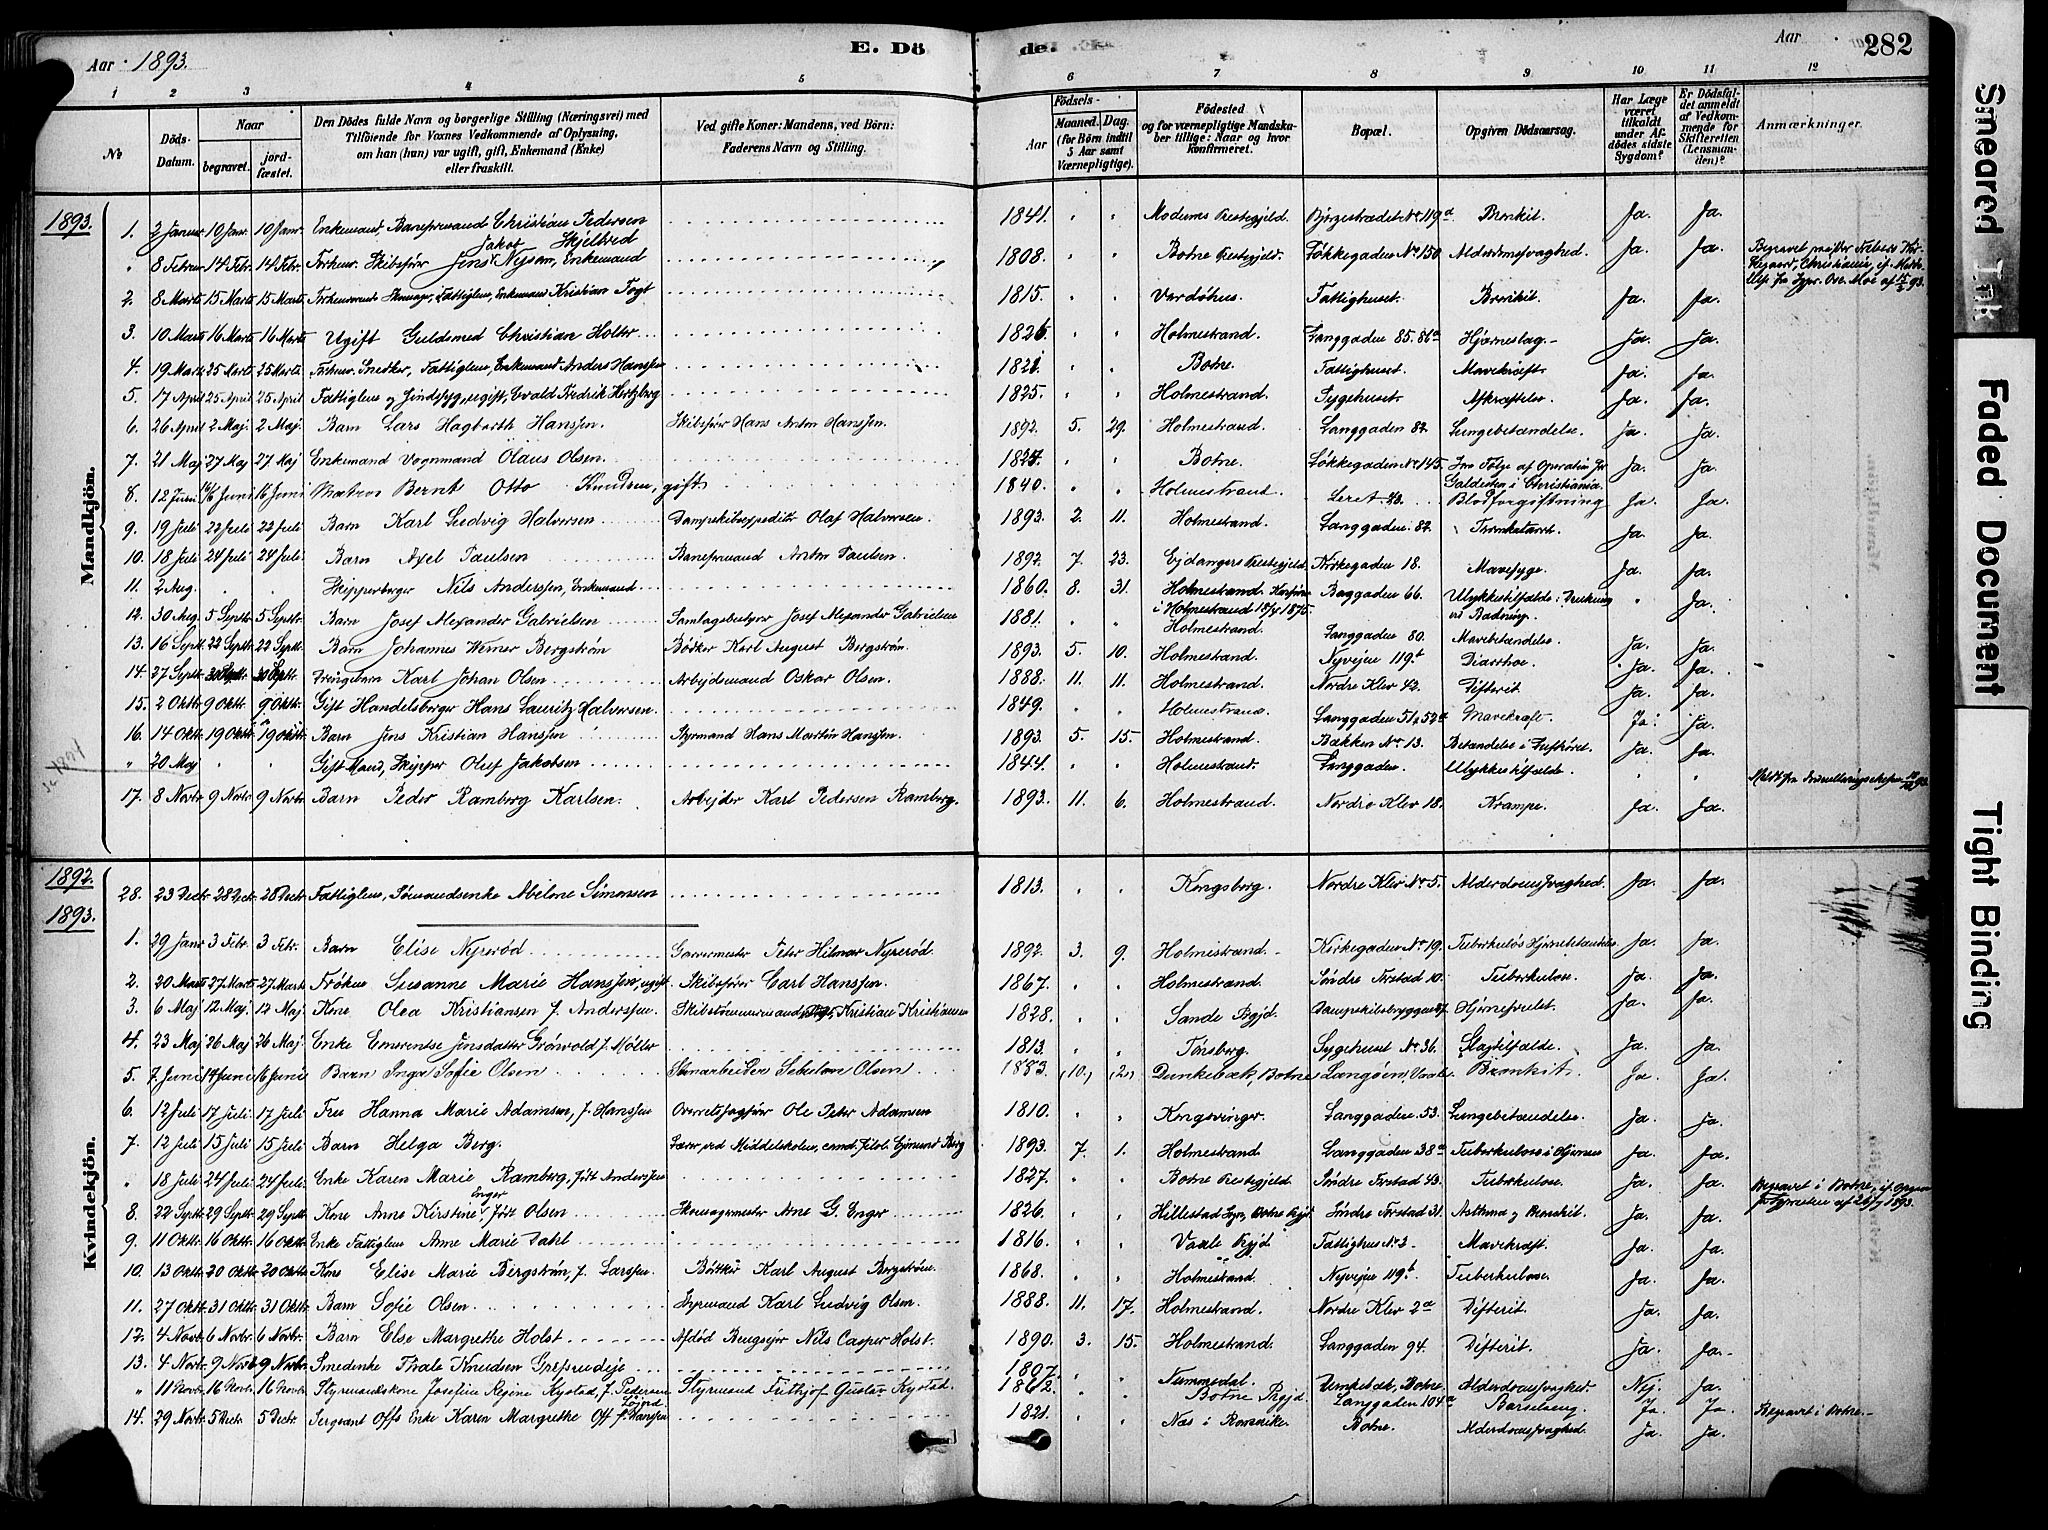 Aar 1893.
E. Döde.
Aar
282
1 2 3 4 5 6 7 8 9 10 11 12
No
Döds-Datum.
Naar
begravet.
jordfæstet.
Den Dödes fulde Navn og borgerlige Stilling (Næringsvei) med Tilföiende for Voxnes Vedkommende af Oplysning, om han (hun) var ugift, gift, Enkemand (Enke) eller fraskilt.
Ved gifte Koner: Mandens, ved Börn: Faderens Navn og Stilling.
Födsels-
Aar
Maaned. Dag.
(for Börn indtil 5 Aar samt Værnepligtige).
Födested og for værnepligtige Mandskaber tillige: Naar og hvor konfirmeret.
Bopæl.
Opgiven Dödsaarsag.
Har Læge været tilkaldt under Afdödes sidste Sygdom?
Er Dödsfaldet anmeldt af Vedkommende for Skifteretten (Lensmanden)?
Anmærkninger.
1893.
Mandkjön.
1. 2 Januar 10 Janr. 10 Janr. Enkemand, Baneformand Christian Pedersen Skjelbred 1841. " " Modums Prestegjeld. Bjørgestrædet No 119a Bronkit. Ja. Ja.
" 8 Februar 14 Febr. 14 Febr. Forhenv. Skibsfør Jens Jakob Nysom, Enkemand 1808. " " Botne Prestegjeld. Løkkegaden No 150. Alderdomssvaghed. Ja. Ja.
2. 8 Marts 15 Marts 15 Marts Forhenværende Skomager, Fattiglem, Enkemand Kristian Fogt 1815. " " Vardøhus. Fattighuset. Bronkit. Ja. Ja.
3. 10 Marts 16 Marts 16 Marts Ugift Guldsmed Christian Holter 1826 " " Holmestrand. Langgaden 85.86a Hjerneslag. Ja. Ja.
4. 19 Marts 25 Marts 25 Marts Forhenv. Snedker, Fattiglem, Enkemand Anders Hanssen 1821 " " Botne. Fattighuset. Mavekræft. Ja. Ja.
5. 17 April 25 April 25 April Fattiglem og Sindssyg, ugift, Evald Fredrik Hertzberg 1825. " " Holmestrand. Sygehuset. Afkræftelse. Ja. Ja.
6. 26 April 2 Maj. 2 Maj. Barn Lars Hagbarth Hanssen. Skibsfører Hans Anton Hanssen. 1892. 5. 29. Holmestrand. Langgaden 82. Lungebetændelse. Ja. Ja.
7. 21 Maj 27 Maj 27 Maj Enkemand Vognmand Olaus Olsen. 1824. " " Botne. Løkkegaden No 145. Ja. Ja.
8. 12 Juni 16 Juni 16 Juni Matros Bernt Otto Knudsen, gift 1840. " " Holmestrand. Leret 43. Blodforgiftning Ja. Ja.
9. 19 Juli 22 Juli 22 Juli Barn Karl Ludvig Halvorsen Dampskibsexpeditør Olaf Halvorsen. 1893. 2. 11. Holmestrand. Langgaden 82. Ja. Ja.
10. 18 Juli 24 Juli 24 Juli Barn Axel Paulsen Baneformand Anton Paulsen. 1892. 7. 23. Ejdangers Prestegjeld. Kirkegaden 18. Mavesyge. Ja. Ja.
11. 2 Aug. " " Skipperborger Nils Anderssen, Enkemand 1860. 8. 31. Holmestrand. i Holmestrand 1875. Baggaden 66. Ulykkestilfælde: Drukning " Ja.
12. 30 Aug. 5 Septbr. 5 Septbr. Barn Josef Alexander Gabrielsen Samlagsbestyrer Josef Alexander Gabrielsen 1881. " " Holmestrand. Langgaden 80. Mavebetændelse. Ja. Ja.
13. 16 Septbr. 22 Septbr. 22 Septbr. Barn Johannes Werner Bergstrøm Bødker Karl August Bergstrøm. 1893. 5. 10. Holmestrand. Nyvejen 119b Diarrhoe. Ja. Ja.
14. 27 Septbr. 30 Septbr. 30 Septbr. Karl Johan Olsen Arbejdsmand Oskar Olsen. 1888. 11. 11. Holmestrand. Nordre Klev 42. Difterit. Ja. Ja.
15. 2 Oktbr. 9 Oktbr. 9 Oktbr. Gift Handelsborger Hans Lauritz Halvorsen. 1849. " " Holmestrand. Langgaden 51 52a Mavekræft. Ja. Ja.
16. 14 Oktbr. 19 Oktbr. 19 Oktbr. Barn Jens Kristian Hanssen Styrmand Hans Martin Hanssen. 1893. 5. 15. Holmestrand. Bakken No 13. Betændelse i Luftrøret. Ja. Ja.
" 20 Maj " " Gift Mand, Skipper Oluf Jakobsen 1844. " " Holmestrand. Langgaden. Ulykkestilfælde. " "
17. 8 Novbr. 9 Novbr. 9 Novbr. Barn Peder Ramberg Karlsen. Arbejder Karl Pedersen Ramberg. 1893. 11. 6. Holmestrand. Nordre Klev 18. Krampe. Ja. Ja.
1892.
28. 23 Decbr. 28 Decbr. 28 Decbr. Fattiglem, Sømandsenke Abelone Simonsen 1813. " " Kongsberg. Nordre Klev No 5. Alderdomssvaghed. Ja. Ja.
1893.
Kvindekjön.
1. 29 Janr. 3 Febr. 3 Febr. Barn Elise Nyerød Garvermester Peter Hilmar Nyerød. 1892. 3. 9. Holmestrand. Kirkegaden No 19. Tuberkuløs Hjernebetændelse Ja. Ja.
2. 20 Marts 27 Marts 27 Marts Frøken Susanne Marie Hanssen, ugift Skibsfører Carl Hanssen. 1867. " " Holmestrand. Søndre Torstad 10. Tuberkulose. Ja. Ja.
3. 6 Maj 12 Maj. 12 Maj. Kone Olea Kristiansen f. Anderssen. Skibstømmermand Kristian Kristiansen 1828. " " Sande Pgjd. Dampskibsbryggen Ja. Ja.
4. 23 Maj 26 Maj. 26 Maj. Enke Emerentse Jensdatter Grønvold f. Møller 1813. " " Tønsberg. Sygehuset No 36. Slagtilfælde. Ja. Ja.
5. 7 Juni 14 Juni 16 Juni Barn Inga Sofie Olsen Stenarbeider Sebulon Olsen 1883. 10. 2. Dunkebæk, Botne Langøen, Vaale Bronkit. Ja. Ja.
6. 12 Juli 17 Juli 17 Juli Fru Hanna Marie Adamsen, f. Hanssen Overretssagfør Ole Peter Adamsen 1810. " " Kongsvinger. Langgaden 53. Lungebetændelse. Ja. Ja.
7. 12 Juli 15 Juli 15 Juli Barn Helga Berg. Lærer ved Middelskolen, cand. filol. Ejmund Berg 1893. 7. 1. Holmestrand. Langgaden 38a Tuberkulose i Hjernen Ja. Ja.
" 18 Juli 24 Juli 24 Juli Enke Karen Marie Ramberg, født Anderssen 1827. " " Botne Prestegjeld. Søndre Torstad 43. Tuberkulose. Ja. Ja.
8. 22 Septbr. 29 Septbr. 29 Septbr. Kone Anne Kirstine Enger født Olsen Skomagermester Arne G. Enger 1826. " " Hillestad Sogn, Botne Pgjd. Søndre Torstad 31. Asthma og Bronkit. Ja. Ja.
9. 11 Oktbr. 16 Oktbr. 16 Oktbr. Enke Fattiglem Anne Marie Dahl 1816. " " Vaale Pgjd Fattighus No 3 Mavekræft. Ja. Ja.
10. 13 Oktbr. 20 Oktbr. 20 Oktbr. Kone Elise Marie Bergstrøm, f. Larssen. Bøtker Karl August Bergstrøm. 1868. " " Holmestrand. Nyvejen 119b Tuberkulose. Ja. Ja.
11. 27 Oktbr. 31 Oktbr. 31 Oktbr. Barn Sofie Olsen Styrmand Karl Ludvig Olsen. 1888. 11. 17. Holmestrand. Nordre Klev 2a Difterit. Ja. Ja.
12. 4 Novbr. 6 Novbr. 6 Novbr. Barn Else Margrethe Holst Afdød Brugsejer Nils Casper Holst. 1890. 3. 15. Holmestrand. Langgaden 94. Difterit. Ja. Ja.
13. 4 Novbr. 9 Novbr. 9 Novbr. Smedenke Thale Knudsen 1807. " " Nummedal. Dunkebæk, Botne. Alderdomssvaghed. Nej. Ja.
" 11 Novbr. 16 Novbr. 16 Novbr. Styrmandskone Josefine Regine Kystad, f. Pedersen Styrmand Frithjof Gustav Kystad. 1862. " " Botne Pgjd. Langgaden 104a Barselseng. Ja. Ja. Begravet i Botne.
14. 29 Novbr. 5 Decbr. 5 Decbr. Sergeant Offs Enke Karen Margrethe Off f. Hanssen 1821. " " Næs i Romerike. Botne. Alderdomssvaghed. Ja. Ja.
Smeared Ink
Faded Document
Tight Binding